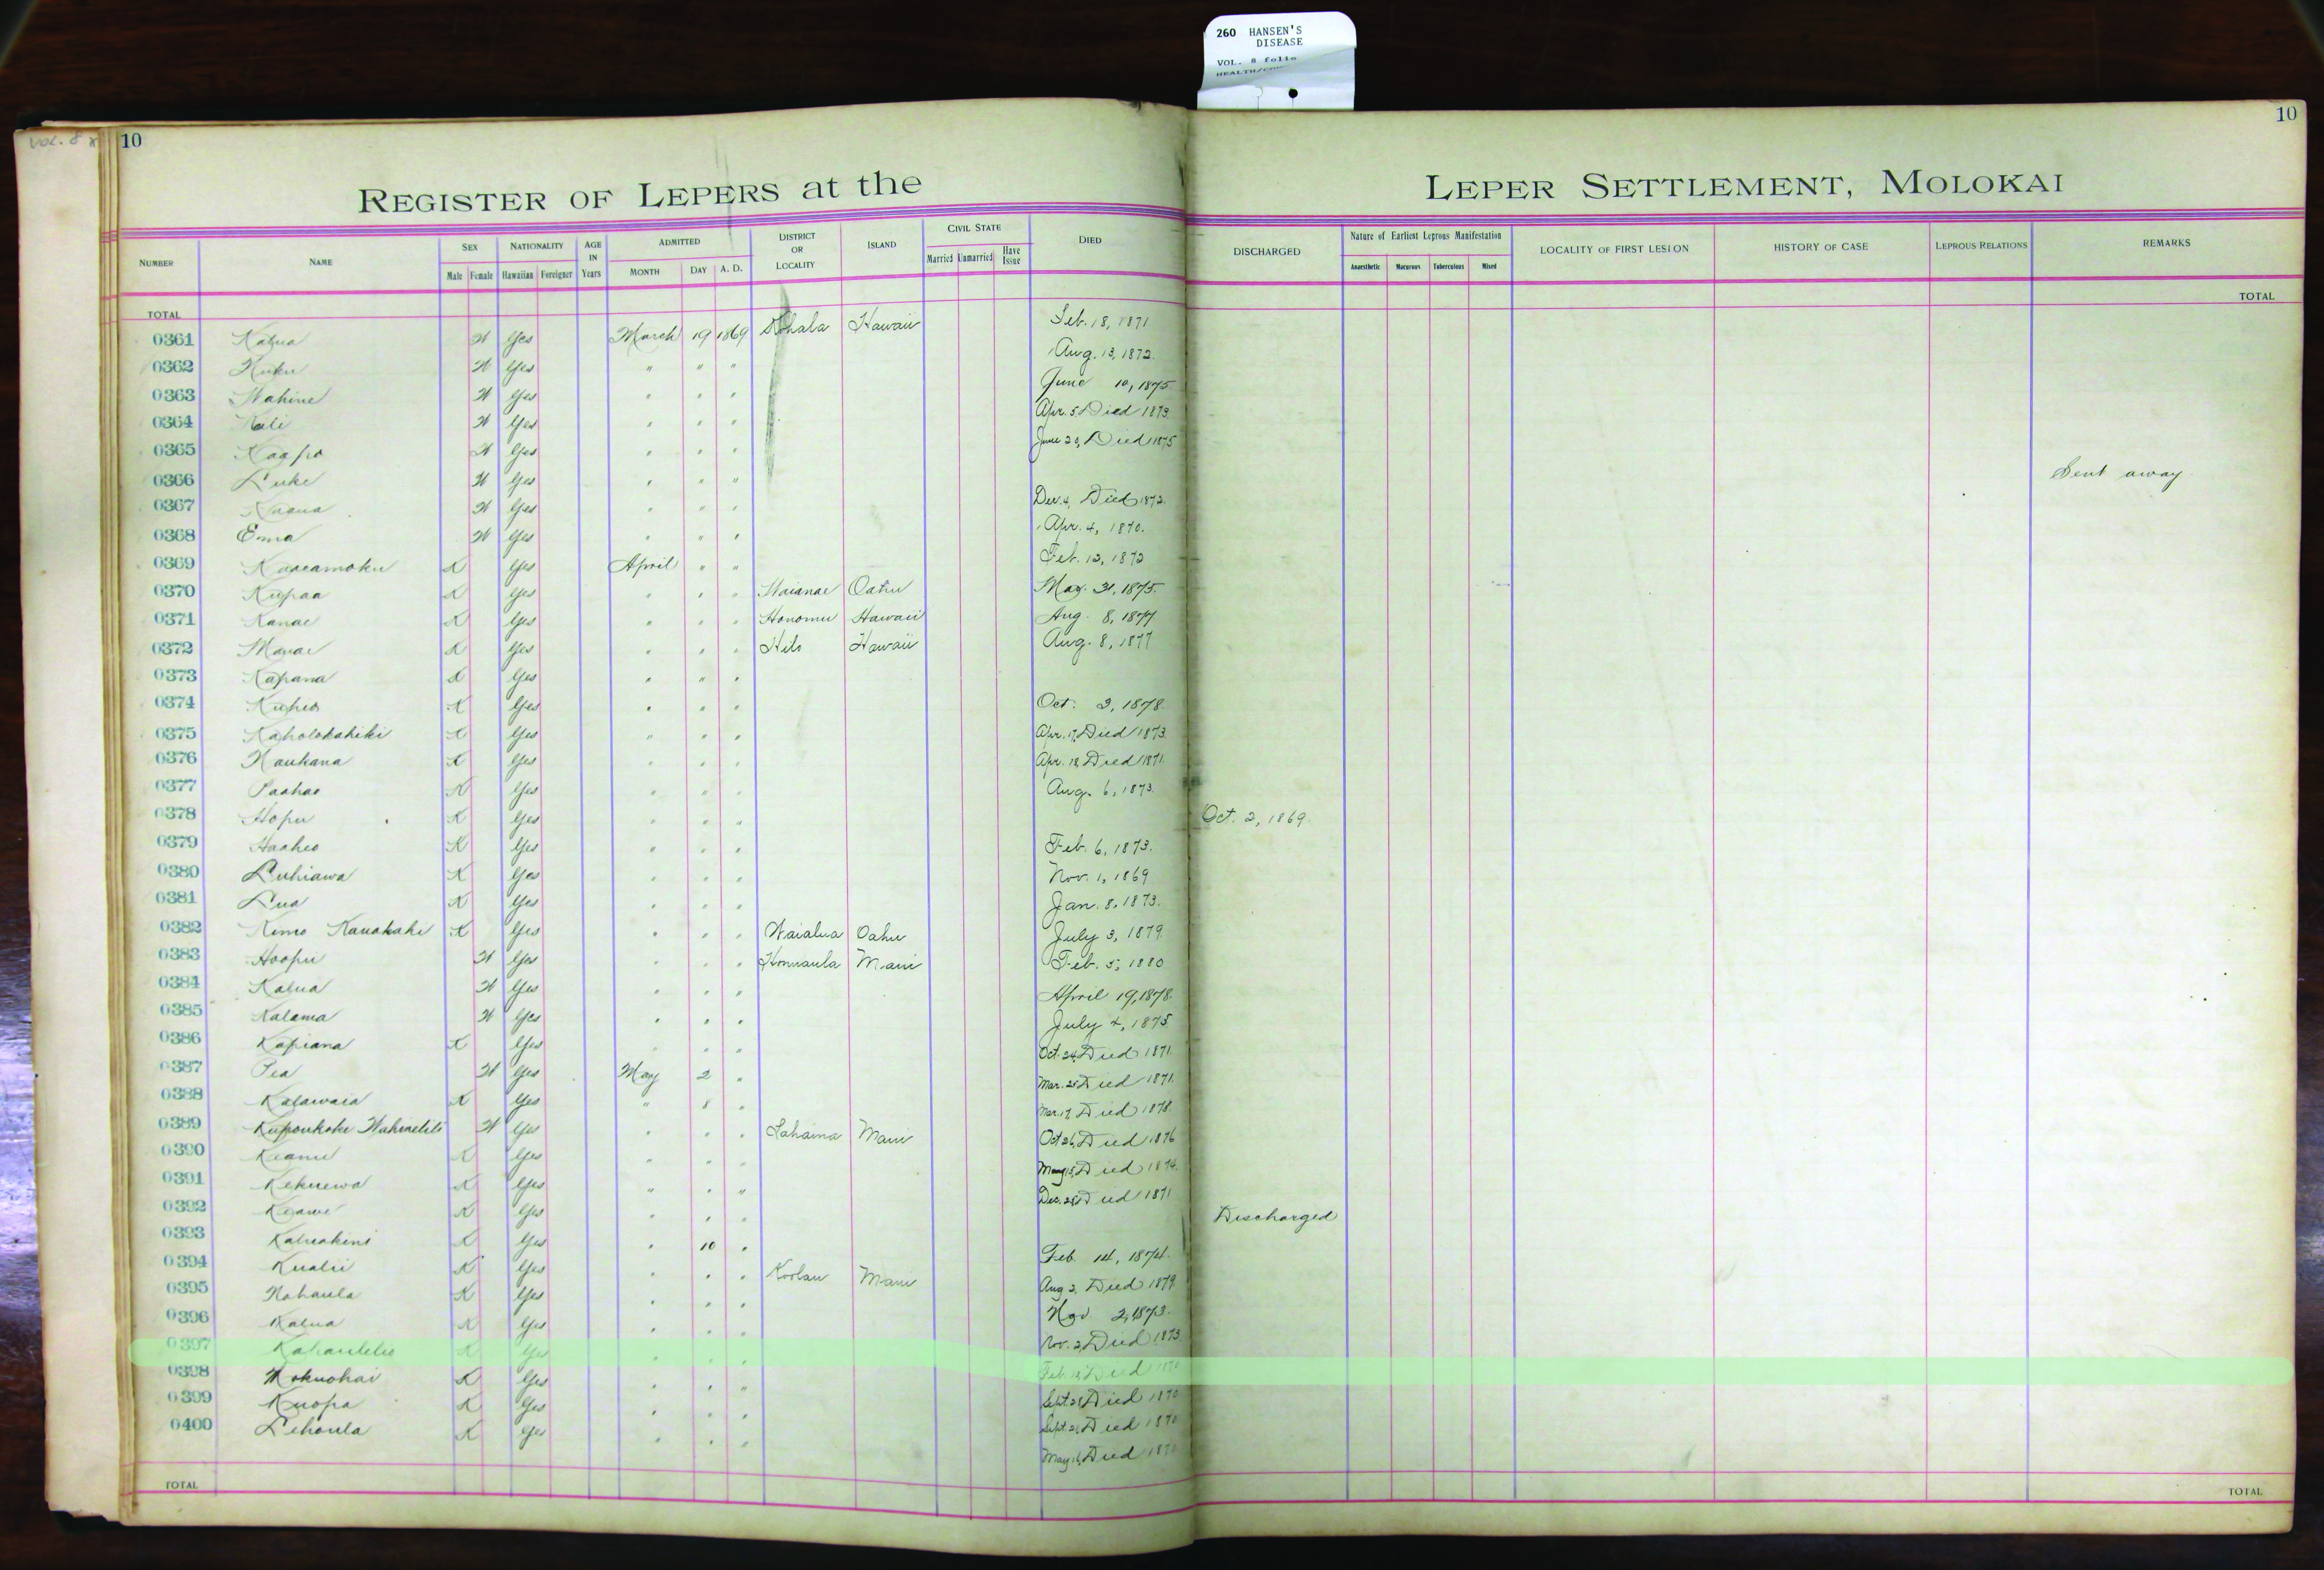 260 HANSEN'S
DISEASE
VOL. 8 folio
VOL. 8
10
10
REGISTER OF LEPERS at the LEPER SETTLEMENT, MOLOKAI
NUMBER NAME SEX NATIONALITY AGE IN Years ADMITTED DISTRICT OR LOCALITY ISLAND CIVIL STATE DIED DISCHARGED Nature of Earliest Leprous Manifestation LOCALITY OF FIRST LESION HISTORY OF CASE LEPROUS RELATIONS REMARKS
Male Female Hawaiian Foreigner MONTH DAY A. D. Married Unmarried Have Issue Anaesthetic Macurous Tuberculous Mixed
TOTAL TOTAL
0361 Kalua W Yes March 19 1869 Kohala Hawaii Feb. 18, 1871
0362 Kuku W Yes " " " Aug. 13, 1872.
0363 Wahine W Yes " " " June 10, 1875
0364 Kali W Yes " " " Apr. 5 Died 1873.
0365 Kaapo W Yes " " " June 29, Died 1875
0366 Luke W Yes " " " Sent away
0367 Kaaua W Yes " " " Dec. 4, Died 1872.
0368 Emma W Yes " " " Apr. 4, 1870.
0369 Kaaeamoku K Yes April " " Feb. 12, 1872
0370 Kupaa K Yes " " " Waianae Oahu May. 31, 1875.
0371 Kanae K Yes " " " Honomu Hawaii Aug. 8, 1877
0372 Manae K Yes " " " Hilo Hawaii Aug. 8, 1877
0373 Kapana K Yes " " "
0374 Kuheo K Yes " " " Oct. 3, 1878.
0375 Kaholokahiki K Yes " " " Apr. 17, Died 1873.
0376 Naukana K Yes " " " Apr. 18 Died 1871.
0377 Paahao K Yes " " " Aug. 6, 1873.
0378 Hopu K Yes " " " Oct. 2, 1869.
0379 Haaheo K Yes " " " Feb. 6, 1873.
0380 Luhiawa K Yes " " " Nov. 1, 1869
0381 Lua K Yes " " " Jan. 8, 1873.
0382 Kimo Kauakahi K Yes " " " Waialua Oahu July 3, 1879.
0383 Hoopii W Yes " " " Honuaula Maui Feb. 5, 1880
0384 Kalua W Yes " " " April 19, 1878.
0385 Kalama W Yes " " " July 4, 1875
0386 Kapiana K Yes " " " Oct. 24, Died 1871.
0387 Pea W Yes May 2 " Mar. 25 Died 1871.
0388 Kalawaia K Yes " 8 " Mar. 17, Died 1878.
0389 Kupoukoke Wahinelili W Yes " " " Lahaina Maui Oct 26, Died 1876
0390 Keanu K Yes " " " May 15, Died 1874.
0391 Kekuewa K Yes " " " Dec. 28 Died 1871
0392 Keawe K Yes " " " Discharged
0393 Kaluakini K Yes " 10 " Feb. 14, 1874.
0394 Kualii K Yes " " " Koolau Maui Aug 2, Died 1879.
0395 Nohaula K Yes " " " Nov 2, 1873.
0396 Kalua K Yes " " " Nov. 2, Died 1873
0397 Kahaulelio K Yes " " " Feb. Died 1870
0398 Mokuohai K Yes " " " Sept. 28 Died 1870
0399 Kuopa K Yes " " " Sept. 21, Died 1870
0400 Lehoula K Yes " " " May 16, Died 1870
TOTAL TOTAL